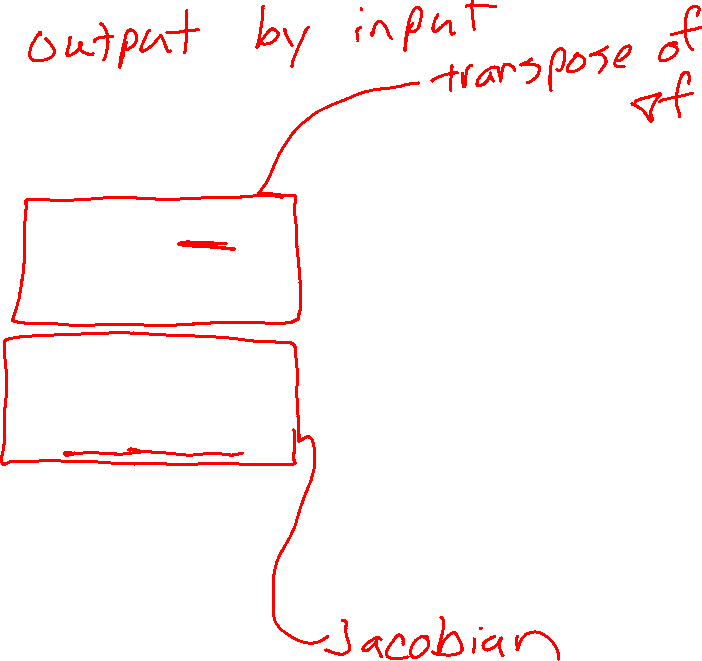 output by input
transpose of
∇f
Jacobian